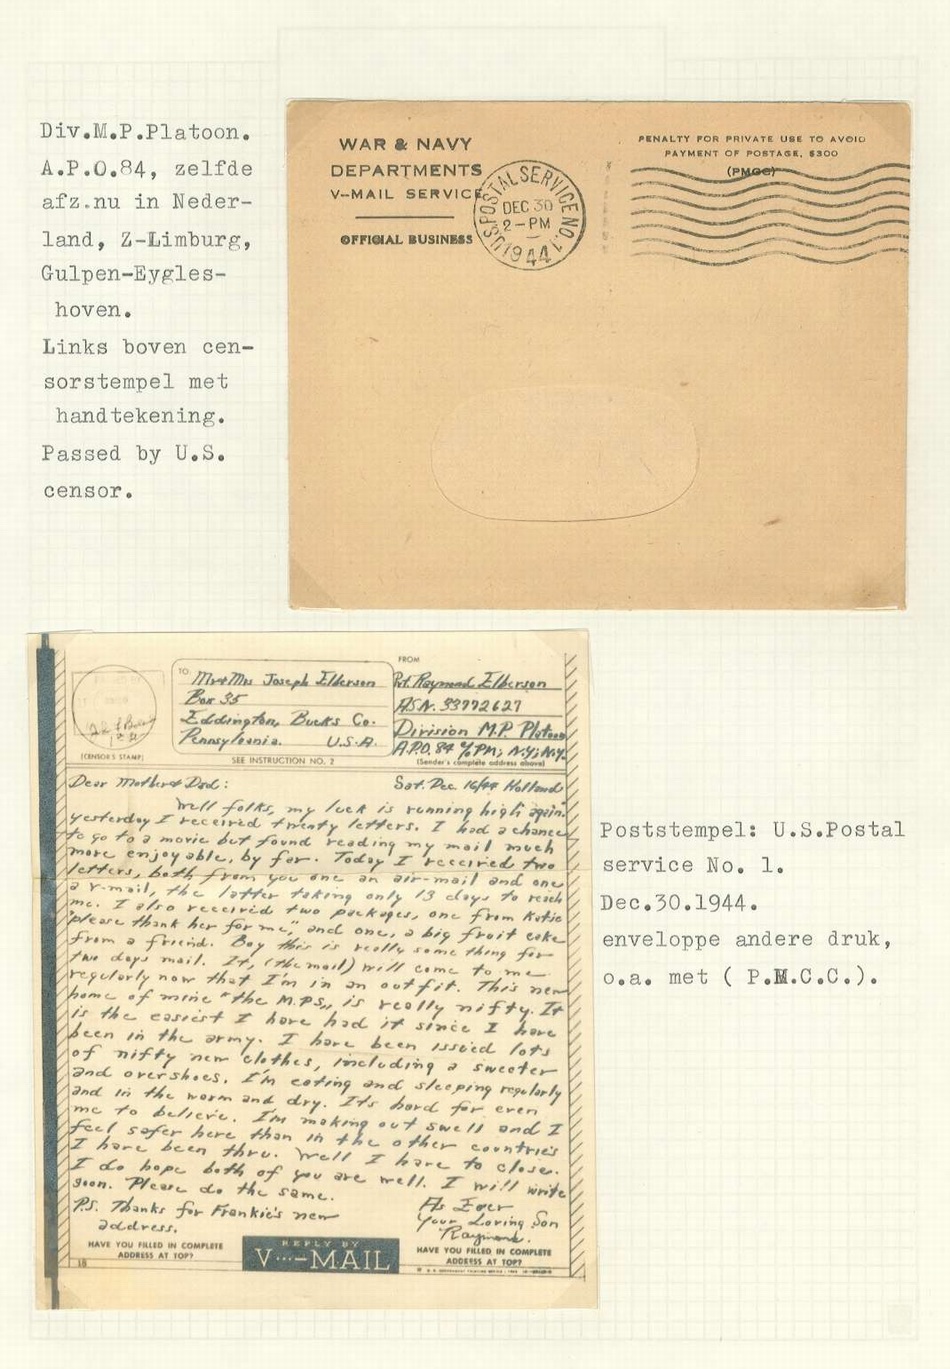 Div.M.P.Platoon.
A.P.O.84, zelfde
afz.nu in Neder-
land, Z-Limburg,
Gulpen-Eygles-
hoven.
Links boven cen-
sorstempel met
handtekening.
Passed by U.S.
censor.
WAR & NAVY
DEPARTMENTS
V-MAIL SERVICE
OFFICIAL BUSINESS
U.S. POSTAL SERVICE NO. 1
DEC 30
2-PM
1944
PENALTY FOR PRIVATE USE TO AVOID
PAYMENT OF POSTAGE, $300
(PMGC)
(CENSOR'S STAMP)
TO
Mr & Mrs Joseph Elberson
Box 35
Eddington, Bucks Co.
Pennsylvania. U.S.A.
SEE INSTRUCTION NO. 2
FROM
Pvt. Raymond Elberson
ASN. 33772627
Division M.P. Platoon
A.P.O. 84 % PM; N.Y; N.Y.
(Sender's complete address above)
Dear Mother & Dad: Sat. Dec. 16/44 Holland
Well folks, my luck is running high again.
yesterday I received twenty letters. I had a chance
to go to a movie but found reading my mail much
more enjoyable, by far. Today I received two
letters, both from you one an air-mail and one
a v-mail, the latter taking only 13 days to reach
me. I also received two packages, one from Katie
"please thank her for me," and one, a big fruit cake
from a friend. Boy this is really some thing for
two days mail. It, (the mail) will come to me
regularly now that I'm in an outfit. This new
home of mine "the M.P.S," is really nifty. It
is the easiest I have had it since I have
been in the army. I have been issued lots
of nifty new clothes, including a sweater
and overshoes. I'm eating and sleeping regularly
and in the warm and dry. Its hard for even
me to believe. I'm making out swell and I
feel safer here than in the other countries
I have been thru. Well I have to close.
I do hope both of you are well. I will write
soon. Please do the same.
As Ever
Your Loving Son
Raymond.
P.S. Thanks for Frankie's new
address.
HAVE YOU FILLED IN COMPLETE
ADDRESS AT TOP?
REPLY BY
V···—MAIL
HAVE YOU FILLED IN COMPLETE
ADDRESS AT TOP?
Poststempel: U.S.Postal
service No. 1.
Dec.30.1944.
enveloppe andere druk,
o.a. met ( P.M.C.C.).